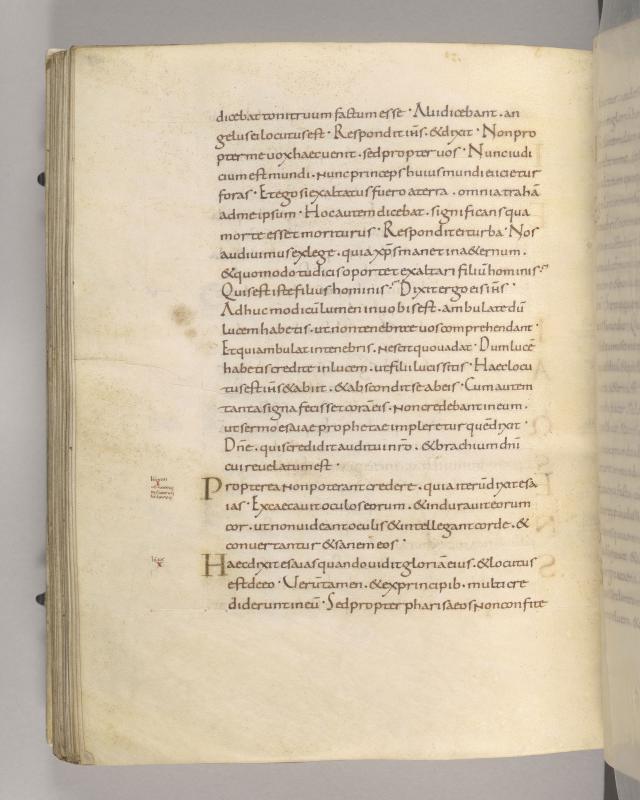 dicebat tonitruum factum esse · Alii dicebant · an
gelus ei locutus est · Respondit ih̄s · & dixit · Non pro
pter me vox haec venit · sed propter vos · Nunc iudi
cium est mundi · nunc princeps huius mundi eicietur
foras · Et ego si exaltatus fuero a terra · omnia trahā
ad me ipsum · Hoc autem dicebat · significans qua
morte esset moriturus · Respondit ei turba · Nos
audivimus ex lege · quia xp̄s manet in a&ernum ·
& quomodo tu dicis oportet exaltari filiū hominis ·
Quis est iste filius hominis · Dixit ergo eis ih̄s ·
Adhuc modicū lumen in vobis est · ambulate dū
lucem habetis · ut non tenebrae vos comprehendant ·
Et qui ambulat in tenebris · nescit quo vadat · Dum lucē
habetis credite in lucem · ut filii lucis sitis · Haec locu
tus est ih̄s & abiit · & abscondit se ab eis · Cum autem
tanta signa fecisset corā eis · non credebant in eum ·
ut sermo esaiae prophetae impleretur quē dixit ·
Dn̄e · quis credidit auditui nr̄o · & brachium dn̄i
cui revelatum est ·
Propterea non poterant credere · quia iterū dixit esa
ias · Excaecavit oculos eorum · & induravit eorum
cor · ut non videant oculis & intellegant corde · &
convertantur & sanem eos ·
Haec dixit esaias quando vidit gloriā eius · & locutus
est de eo · Verūtamen · & ex principib · multi cre
diderunt in eū · Sed propter pharisaeos non confite